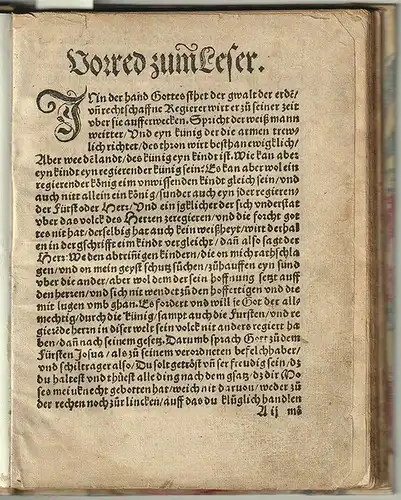 Vorred zum̃ Leser.
IN der hand Gottes sthet der gwalt der erdẽ/
vñ rechtschaffne Regierer wirt er zů seiner zeit
vber sie aufferwecken. Spricht der weiß mann
weitter/ Vnd eyn künig der die armen trew-
lich richtet/ des thron wirt besthan ewigklich/
Aber wee dẽ landt/ des künig eyn kindt ist. Wie kan aber
eyn kindt eyn regierender künig sein: Es kan aber wol ein
regierender könig eim vnwissenden kindt gleich sein/ vnd
auch nitt allein ein könig/ sunder auch eyn jder regierer/
der Fürst oder Herr/ Vnd ein jgklicher der sich vnderstat
vber das volck des Herren zeregieren/ vnd die forcht got
tes nit hat/ derselbig hat auch kein weißheyt/ wirt derhal
en in der gschrifft eim kindt vergleicht/ dañ also sagt der
Herr: We den abtriñigen kindern/ die on mich rathschla
gen/ vnd on mein geyst schutz sůchen/ zůhauffen eyn sünd
vber die ander/ aber wol dem der sein hoffnung setzt auff
den herzen/ vnd sich nit wendet zů den hoffertigen vnd die
mit lugen vmb ghan. Es fordert vnd will je Got der all-
mechtig/ durch die künig/ sampt auch die Fursten/ vnd re
gierẽde hertzn in diser welt sein volck nit anders regiert ha
ben/ dañ nach seinem gesetz. Darumb sprach Gott zů dem
Fürsten Josua/ als zů seinem verordneten befelchhaber/
vnd schiltrager also/ Du solt getöst vñ ser freudig sein/ dz
du haltest vnd thůest alle ding nach dem gsatz/ dz dir Mo
ses mei vknecht gebotten hat/ weich nit daruon/ weder zů
der rechen noch zůr lincken/ auff das du klüglich handlen
A ij mö